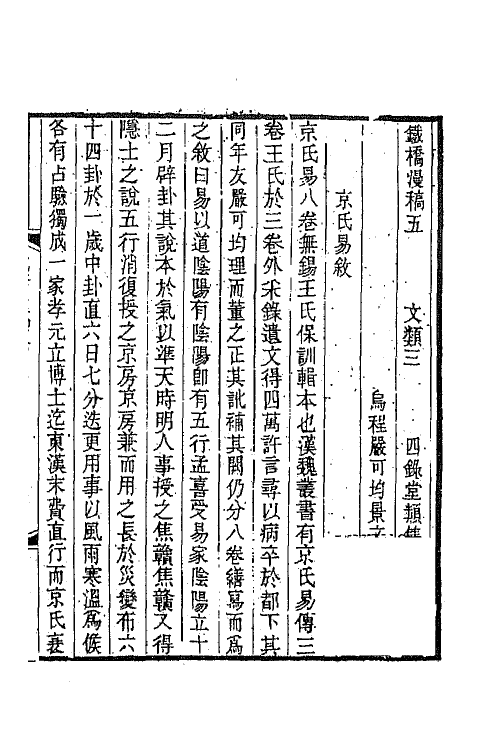 鐵橋漫稿五　文類三　四錄堂類集
烏程嚴可均景文
京氏易敘
京氏易八卷無錫王氏保訓輯本也漢魏叢書有京氏易傳三
卷王氏於三卷外采錄遺文得四萬許言尋以病卒於都下其
同年友嚴可均理而董之正其訛補其闕仍分八卷繕寫而爲
之敘曰易以道陰陽有陰陽卽有五行孟喜受易家陰陽立十
二月辟卦其說本於氣以準天時明人事授之焦贛焦贛又得
隱士之說五行消復授之京房京房兼而用之長於災變布六
十四卦於一歲中卦直六日七分迭更用事以風雨寒溫爲候
各有占驗獨成一家孝元立博士迄東漢末費直行而京氏衰